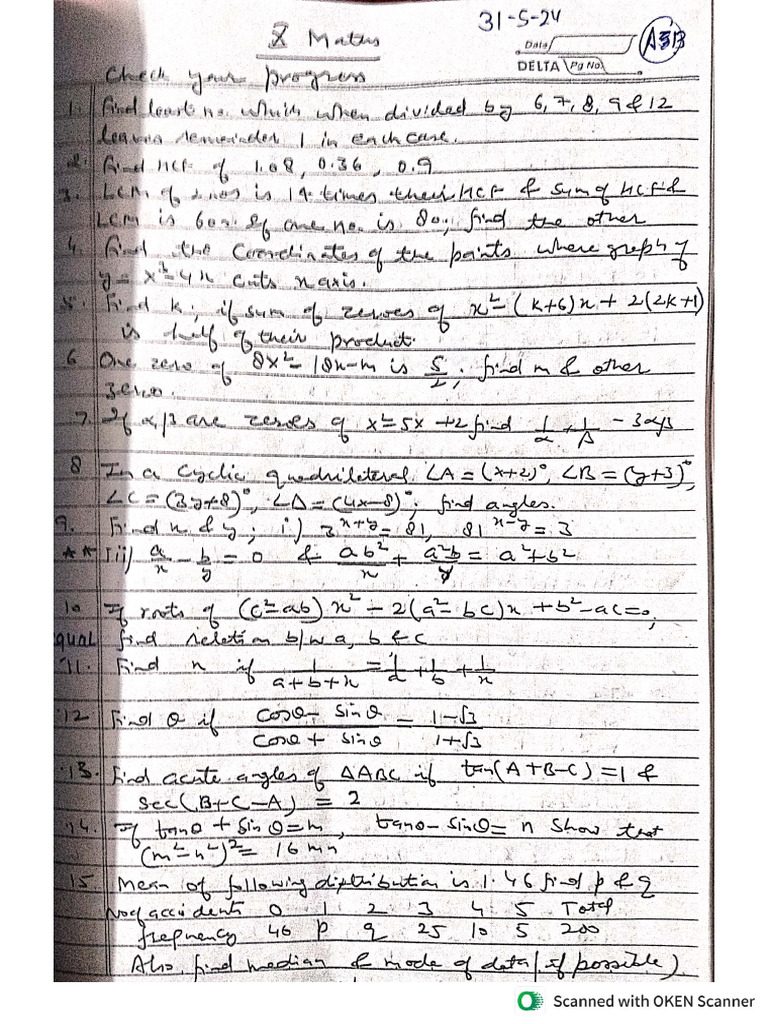 31-5-24
X Maths
Date
A5B
DELTA Pg No
Check your progress
1. Find least no. which when divided by 6, 7, 8, 9 & 12
leaves remainder 1 in each case.
2. Find HCF of 1.08, 0.36, 0.9
3. LCM of 2 nos is 14 times their HCF & sum of HCF &
LCM is 600. If one no. is 80, find the other
4. Find the coordinates of the points where graph of
y = x³-4x cuts x axis.
5. Find k, if sum of zeroes of x²-(k+6)x + 2(2k+1)
is half of their product.
6 One zero of 8x²-18x-m is 5/2, find m & other
zero.
7. If α, β are zeroes of x²-5x+2 find 1/α + 1/β - 3αβ
8 In a cyclic quadrilateral ∠A = (x+2)°, ∠B = (y+3)°,
∠C = (3y+8)°, ∠D = (4x-8)°, find angles.
9. Find x & y; i) 3^(x+y) = 81, 81^(x-y) = 3
** ii) a/x - b/y = 0 & ab²/x + a²b/y = a²+b²
10 If roots of (c²-ab)x² - 2(a²-bc)x + b²-ac=0,
qual find relation b/w a, b & c
11. Find x if 1/(a+b+x) = 1/a + 1/b + 1/x
12 Find θ if (cosθ - sinθ)/(cosθ + sinθ) = (1-√3)/(1+√3)
13. Find acute angles of ΔABC if tan(A+B-C) = 1 &
sec(B+C-A) = 2
14. If tanθ + sinθ = m, tanθ - sinθ = n show that
(m²-n²)² = 16mn
15 Mean of following distribution is 1.46 find p & q
No of accidents 0 1 2 3 4 5 Total
frequency 46 p q 25 10 5 200
Also, find median & mode of data (if possible)
Scanned with OKEN Scanner